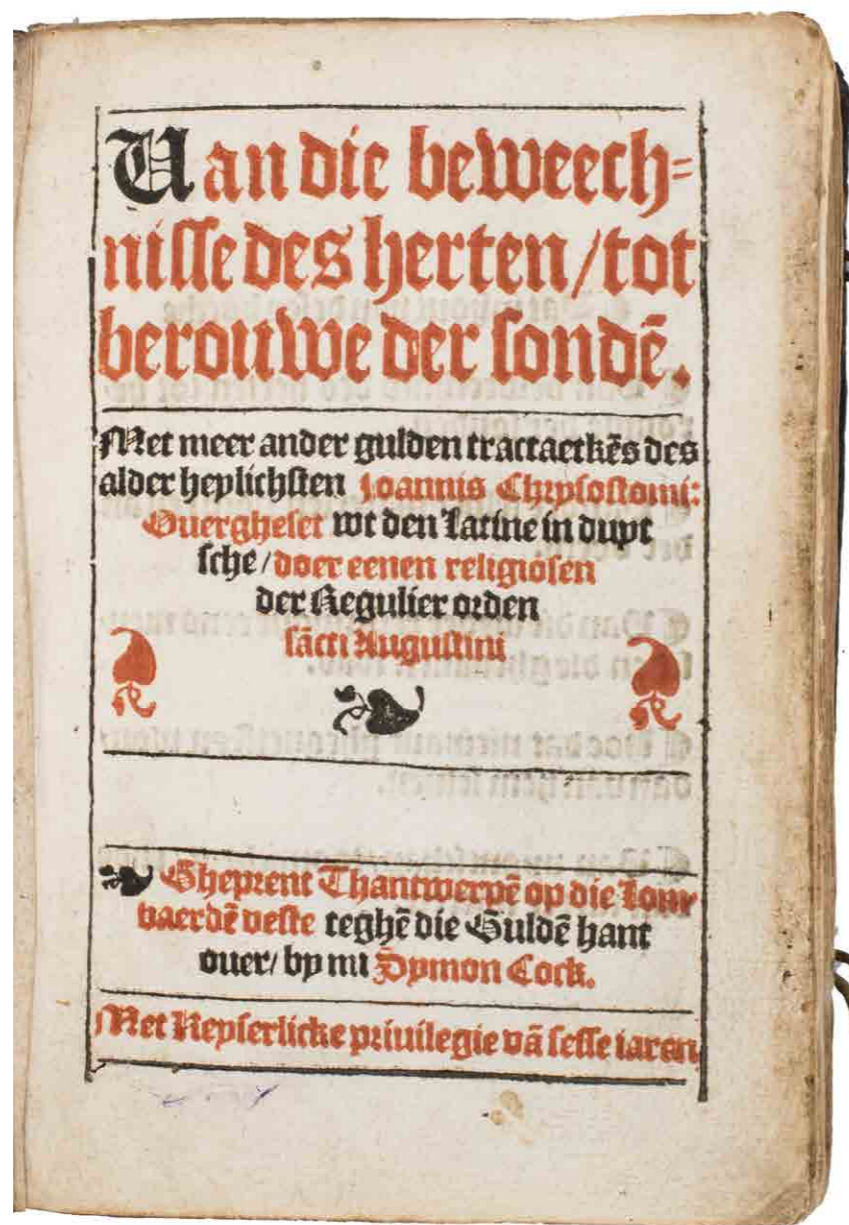 Van die beweech=
nisse des herten/tot
berouwe der sondē.
Met meer ander gulden tractaetkēs des
alder heylichsten Joannis Chrysostomi:
Ouergheset wt den Latine in duyt
sche/doer eenen religiosen
der Regulier orden
sācti Augustini
Gheprent Thantwerpē op die Lom
baerdē veste teghē die Guldē hant
ouer/ by mi Symon Cock.
Met Keyserlicke priuilegie vā sesse iaren